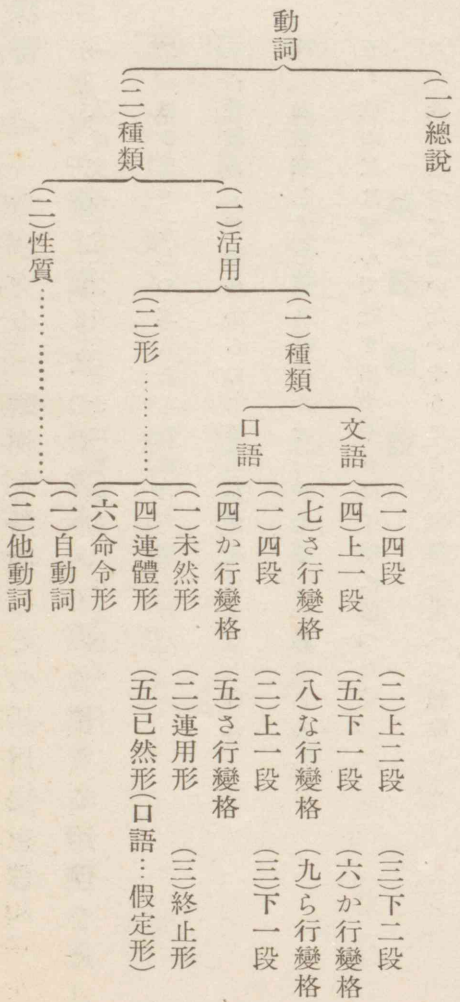 動詞
(一)總說
(二)種類
(一)活用
(一)種類
文語
(一)四段 (二)上二段 (三)下二段
(四)上一段 (五)下一段 (六)か行變格
(七)さ行變格 (八)な行變格 (九)ら行變格
口語
(一)四段 (二)上一段 (三)下一段
(四)か行變格 (五)さ行變格
(二)形………
(一)未然形 (二)連用形 (三)終止形
(四)連體形 (五)已然形(口語…假定形)
(六)命令形
(二)性質………………
(一)自動詞
(二)他動詞